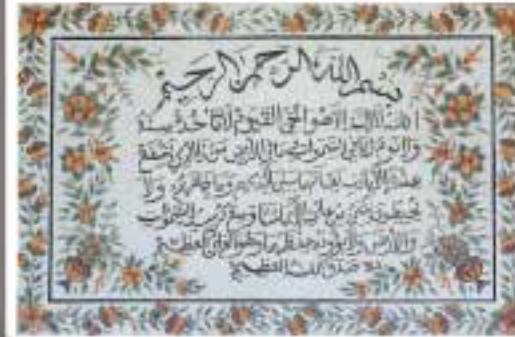 بسم الله الرحمن الرحيم
الله لا اله الا هو الحي القيوم لا تأخذه سنة
ولا نوم له ما في السموات وما في الارض من ذا الذي يشفع
عنده الا باذنه يعلم ما بين ايديهم وما خلفهم ولا
يحيطون بشيء من علمه الا بما شاء وسع كرسيه السموات
والأرض ولا يؤوده حفظهما وهو العلي العظيم
صدق الله العظيم